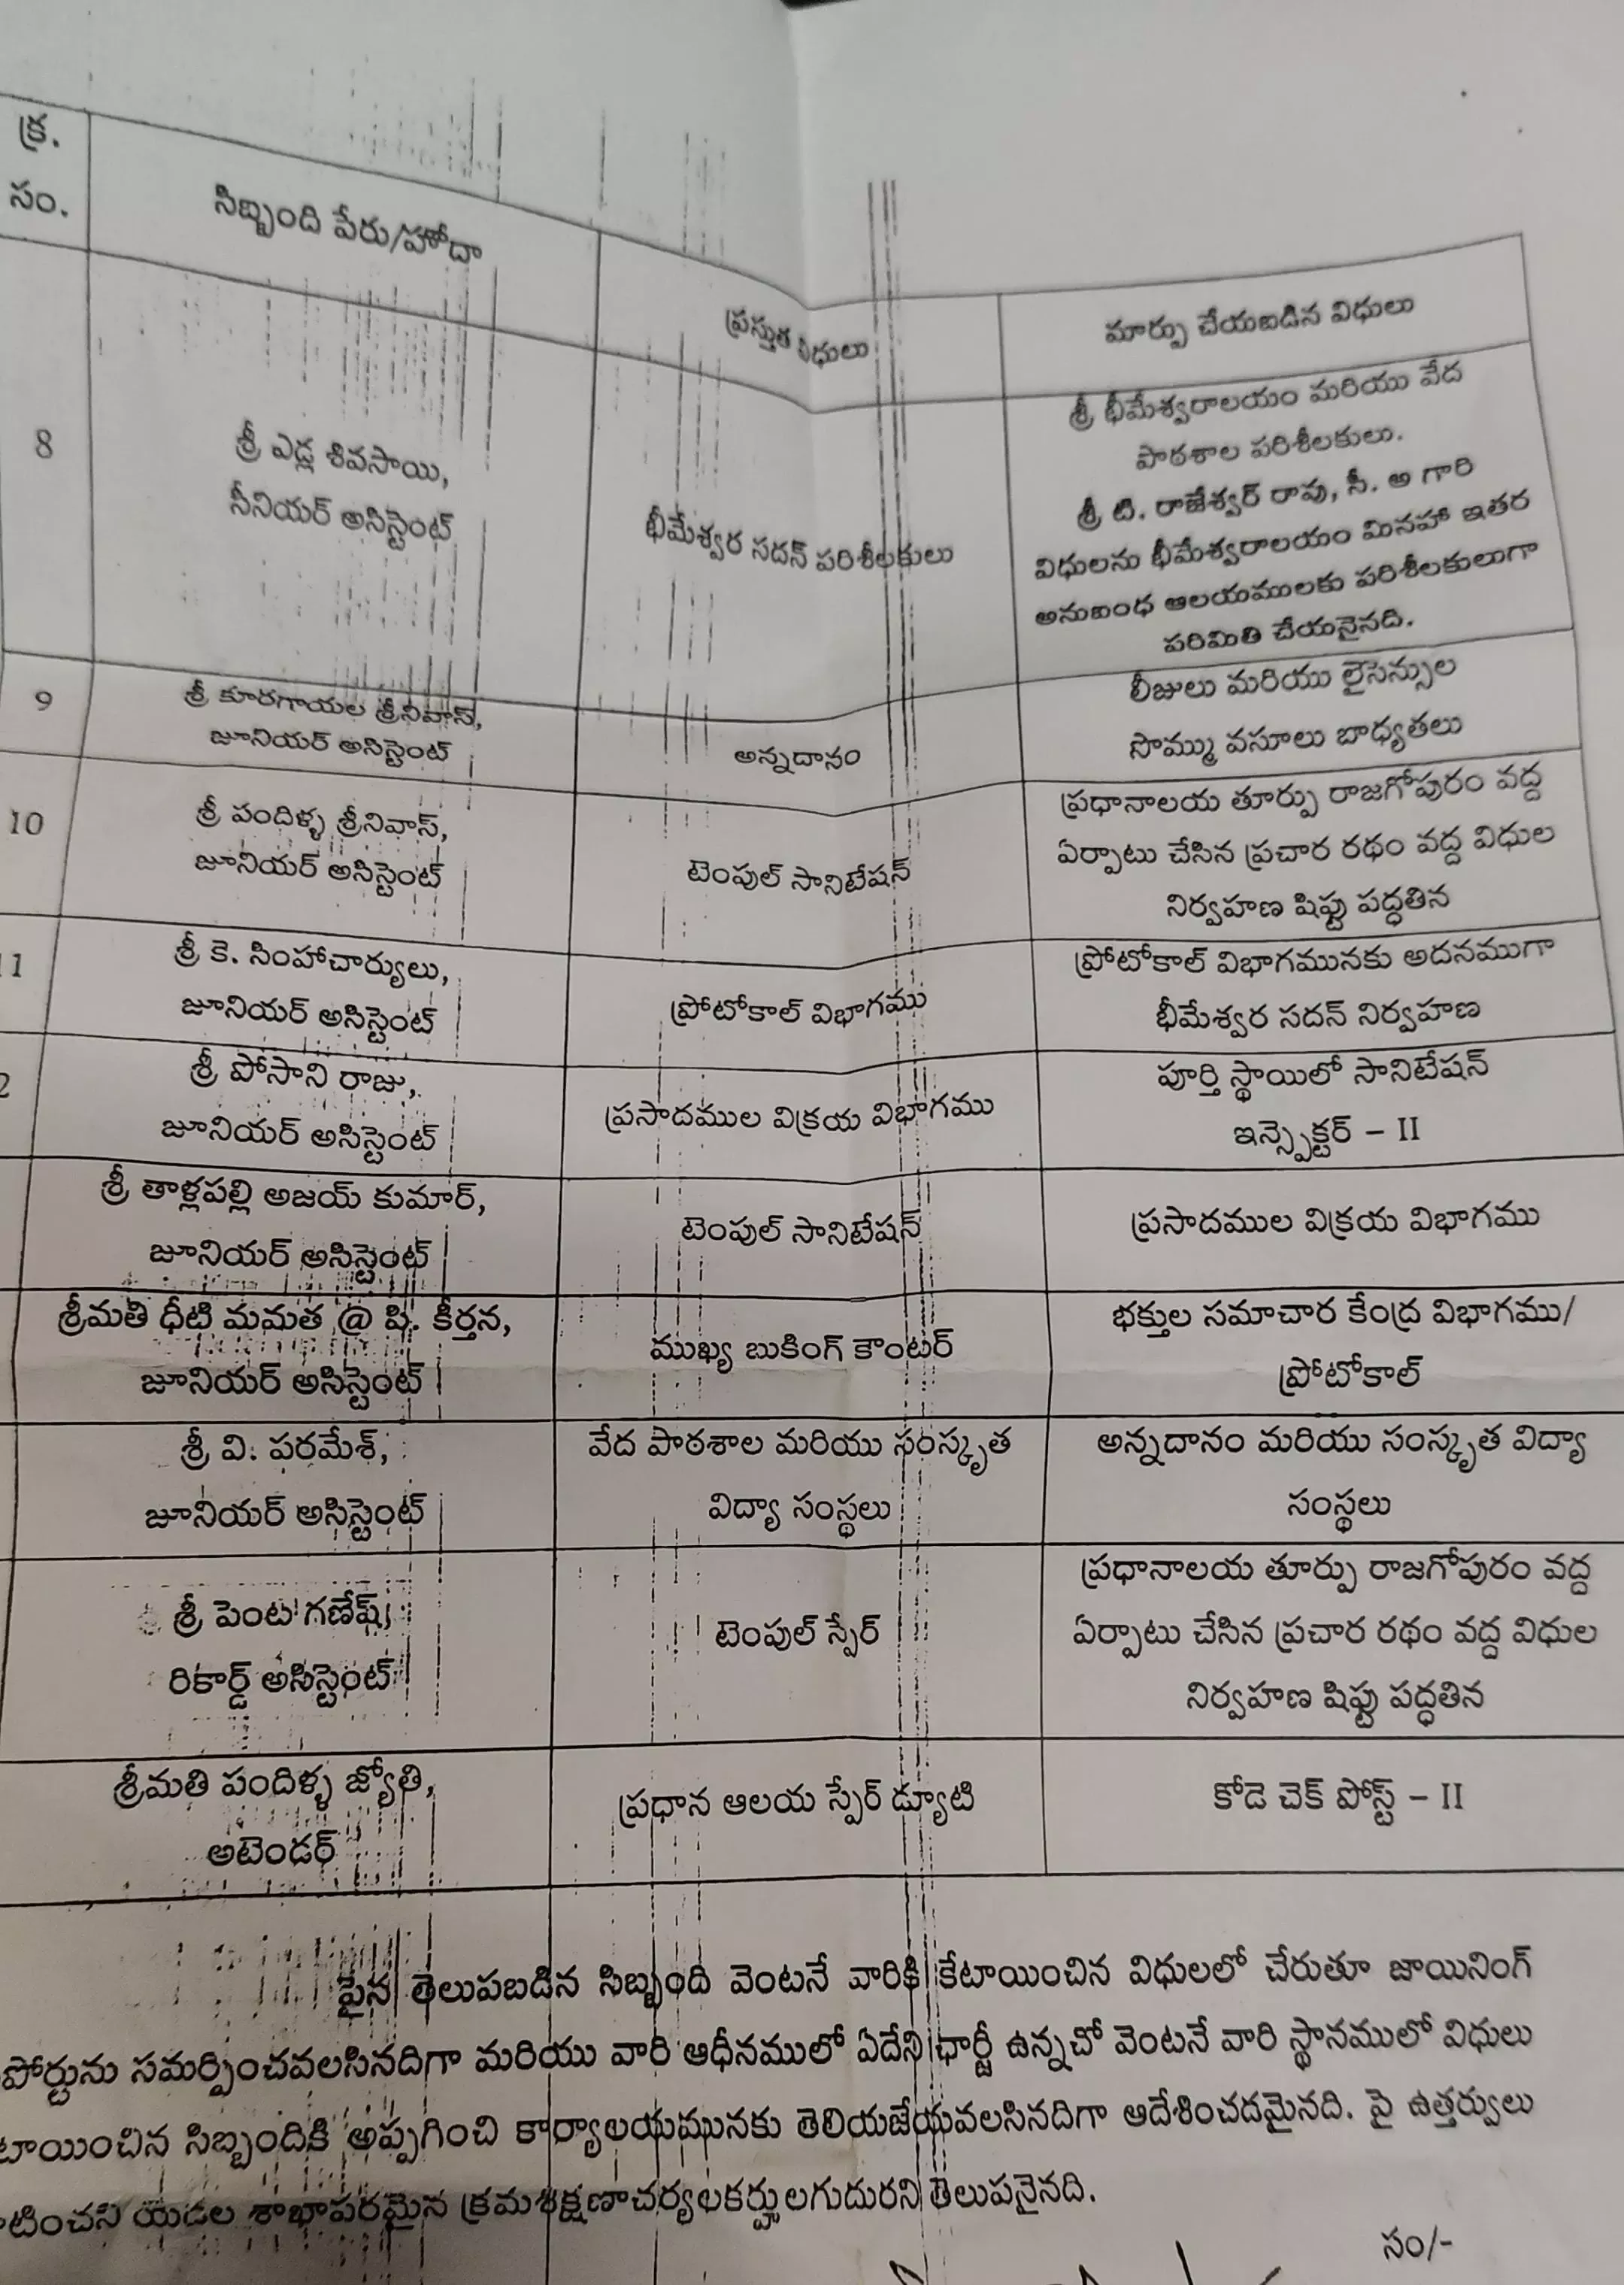 క్ర.
సం.
సిబ్బంది పేరు/హోదా
ప్రస్తుత విధులు
మార్పు చేయబడిన విధులు
8
శ్రీ ఎడ్ల శివసాయి,
సీనియర్ అసిస్టెంట్
భీమేశ్వర సదన్ పరిశీలకులు
శ్రీ భీమేశ్వరాలయం మరియు వేద
పాఠశాల పరిశీలకులు.
శ్రీ టి. రాజేశ్వర్ రావు, సీ. అ గారి
విధులను భీమేశ్వరాలయం మినహా ఇతర
అనుబంధ ఆలయములకు పరిశీలకులుగా
పరిమితి చేయనైనది.
9
శ్రీ కూరగాయల శ్రీనివాస్,
జూనియర్ అసిస్టెంట్
అన్నదానం
లీజులు మరియు లైసెన్సుల
సొమ్ము వసూలు బాధ్యతలు
10
శ్రీ పందిళ్ళ శ్రీనివాస్,
జూనియర్ అసిస్టెంట్
టెంపుల్ సానిటేషన్
ప్రధానాలయ తూర్పు రాజగోపురం వద్ద
ఏర్పాటు చేసిన ప్రచార రథం వద్ద విధుల
నిర్వహణ షిఫ్టు పద్ధతిన
11
శ్రీ కె. సింహాచార్యులు,
జూనియర్ అసిస్టెంట్
ప్రోటోకాల్ విభాగము
ప్రోటోకాల్ విభాగమునకు అదనముగా
భీమేశ్వర సదన్ నిర్వహణ
2
శ్రీ పోసాని రాజు,
జూనియర్ అసిస్టెంట్
ప్రసాదముల విక్రయ విభాగము
పూర్తి స్థాయిలో సానిటేషన్
ఇన్స్పెక్టర్ – II
శ్రీ తాళ్లపల్లి అజయ్ కుమార్,
జూనియర్ అసిస్టెంట్
టెంపుల్ సానిటేషన్
ప్రసాదముల విక్రయ విభాగము
శ్రీమతి ధీటి మమత @ షి. కీర్తన,
జూనియర్ అసిస్టెంట్
ముఖ్య బుకింగ్ కౌంటర్
భక్తుల సమాచార కేంద్ర విభాగము/
ప్రోటోకాల్
శ్రీ వి. పరమేశ్,
జూనియర్ అసిస్టెంట్
వేద పాఠశాల మరియు సంస్కృత
విద్యా సంస్థలు
అన్నదానం మరియు సంస్కృత విద్యా
సంస్థలు
శ్రీ పెంట గణేష్,
రికార్డ్ అసిస్టెంట్
టెంపుల్ స్పేర్
ప్రధానాలయ తూర్పు రాజగోపురం వద్ద
ఏర్పాటు చేసిన ప్రచార రథం వద్ద విధుల
నిర్వహణ షిఫ్టు పద్ధతిన
శ్రీమతి పందిళ్ళ జ్యోతి,
అటెండర్
ప్రధాన ఆలయ స్పేర్ డ్యూటి
కోడె చెక్ పోస్ట్ – II
పైన తెలుపబడిన సిబ్బంది వెంటనే వారికి కేటాయించిన విధులలో చేరుతూ జాయినింగ్
పోర్టును సమర్పించవలసినదిగా మరియు వారి ఆధీనములో ఏదేని ఛార్జీ ఉన్నచో వెంటనే వారి స్థానములో విధులు
టాయించిన సిబ్బందికి అప్పగించి కార్యాలయమునకు తెలియజేయవలసినదిగా ఆదేశించడమైనది. పై ఉత్తర్వులు
టించని యెడల శాఖాపరమైన క్రమశిక్షణాచర్యలకర్హులగుదురని తెలుపనైనది.
సం/-